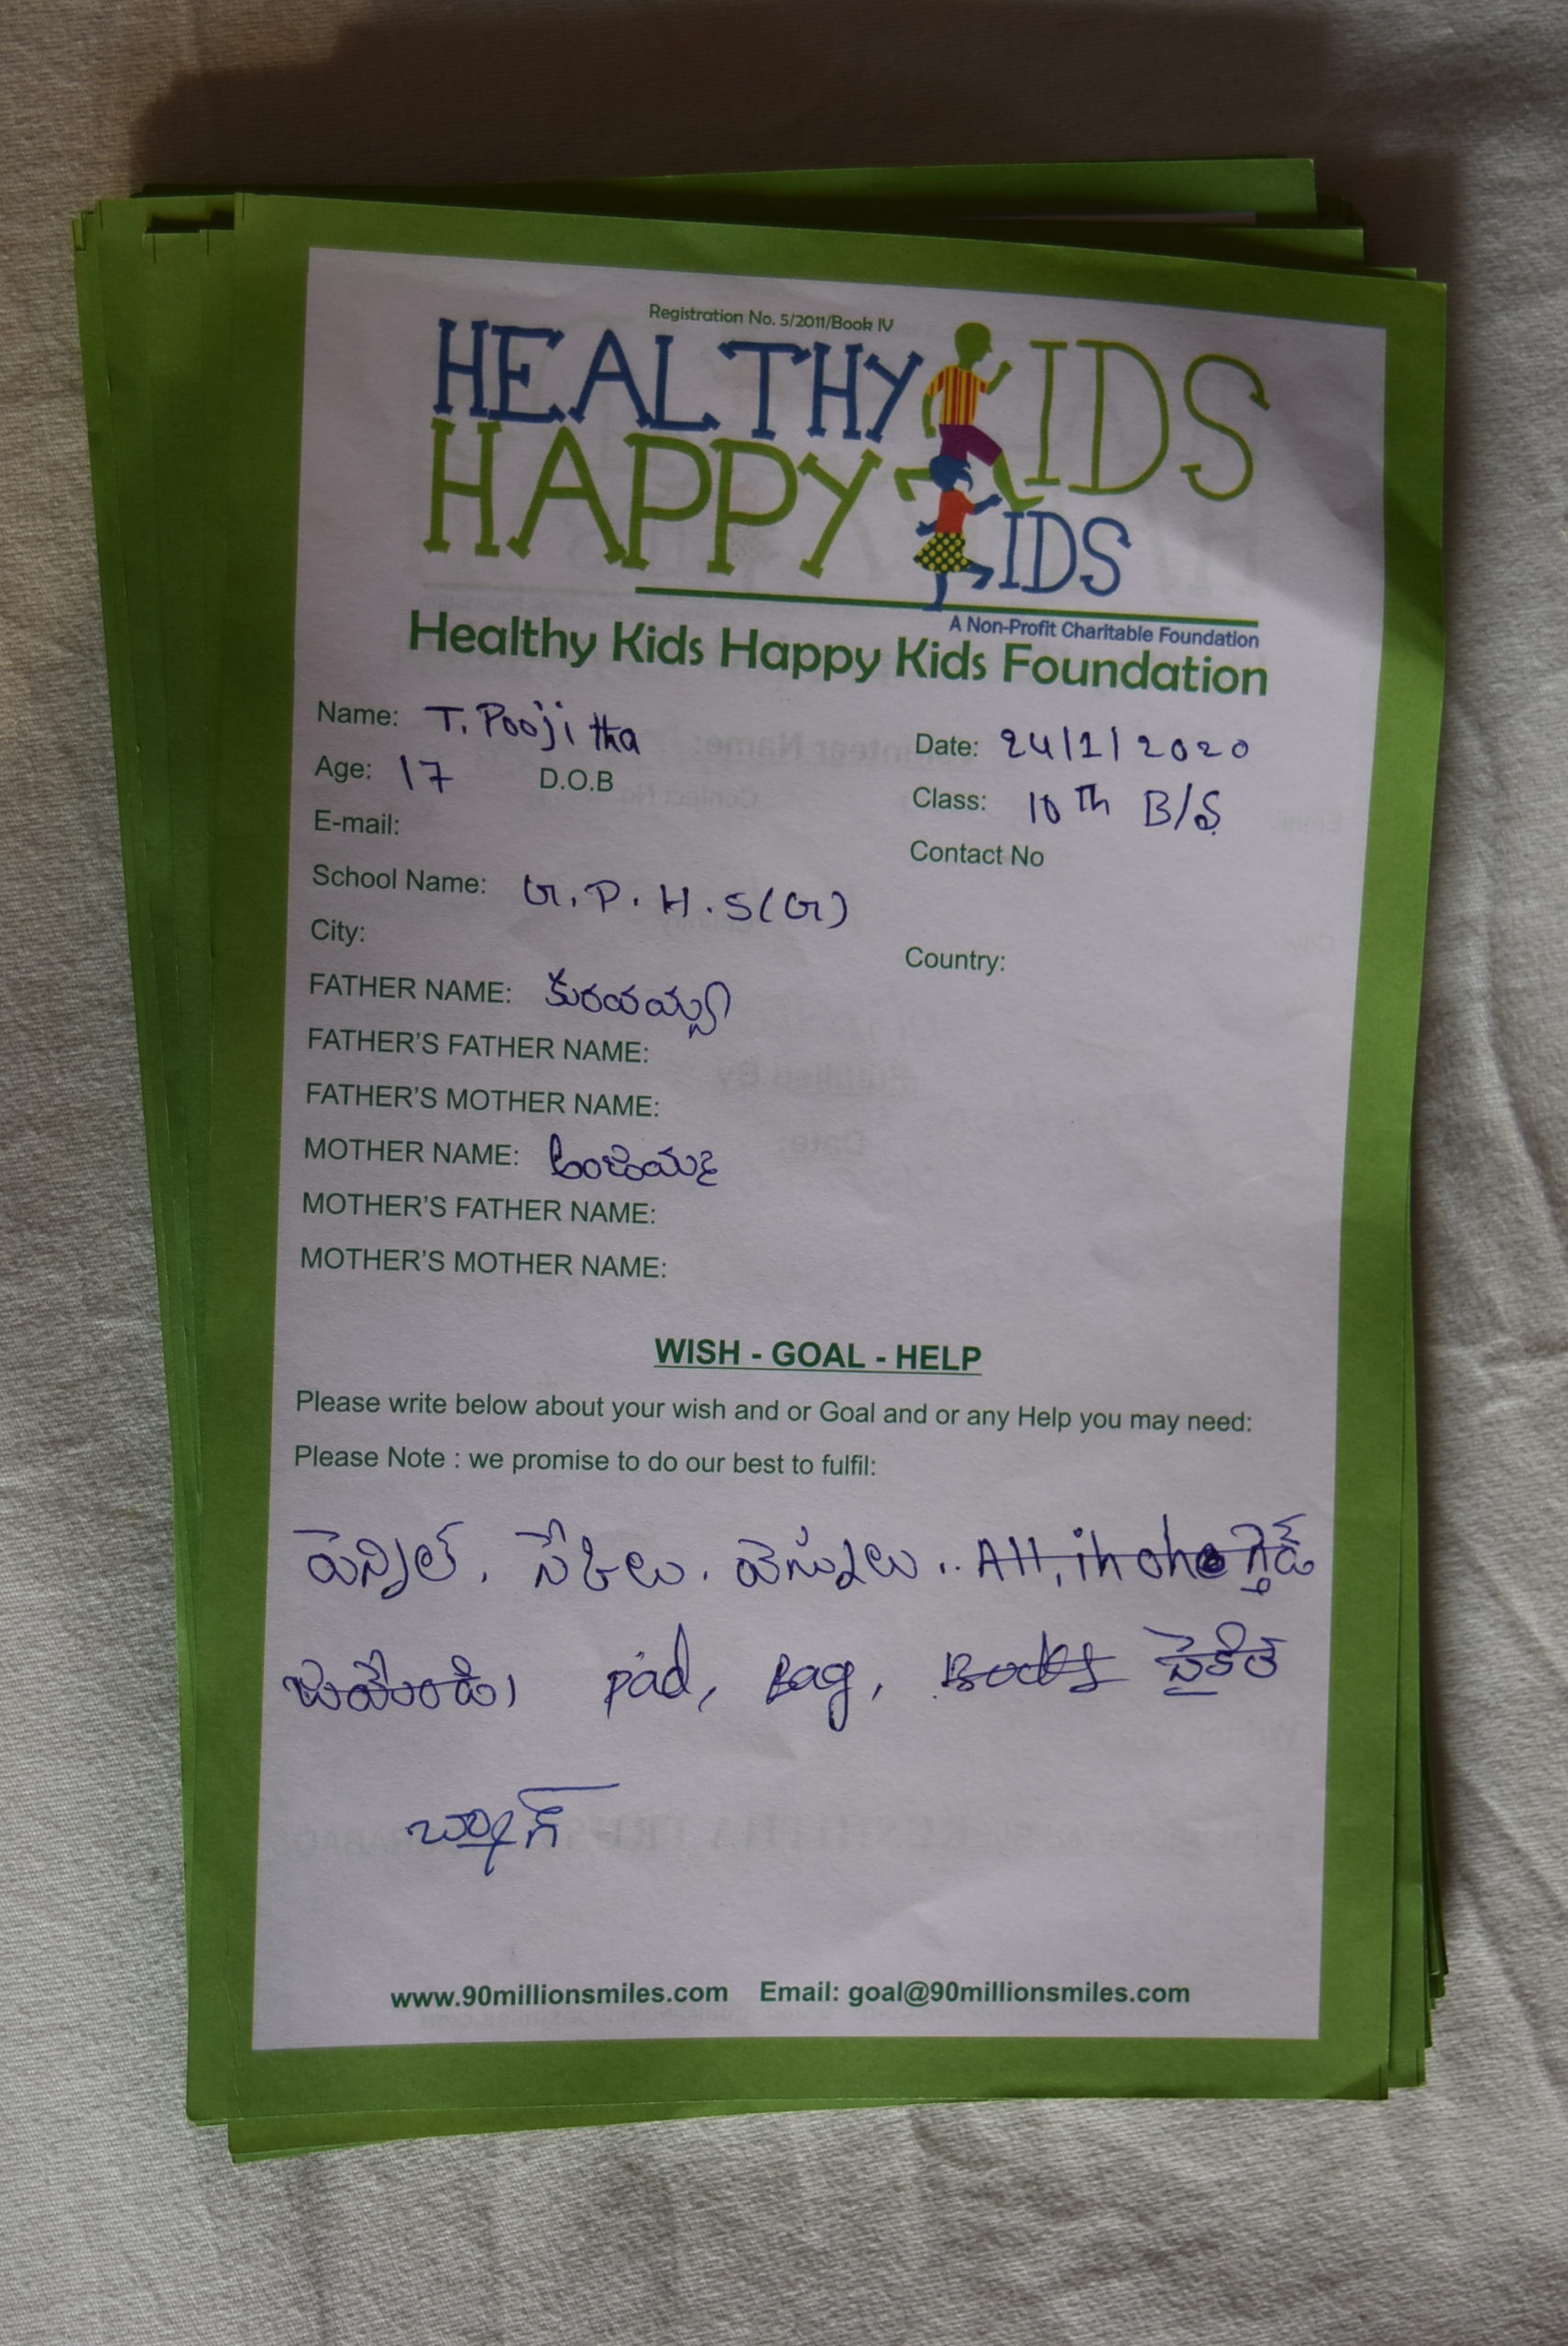 Registration No. 5/2011/Book IV
HEALTHY KIDS
HAPPY KIDS
A Non-Profit Charitable Foundation
Healthy Kids Happy Kids Foundation
Name: T. Poojitha Date: 24/1/2020
Age: 17 D.O.B Class: 10th B/S
E-mail: Contact No
School Name: G.P.H.S(G)
City: Country:
FATHER NAME:
FATHER'S FATHER NAME:
FATHER'S MOTHER NAME:
MOTHER NAME:
MOTHER'S FATHER NAME:
MOTHER'S MOTHER NAME:
WISH - GOAL - HELP
Please write below about your wish and or Goal and or any Help you may need:
Please Note : we promise to do our best to fulfil:
పెన్సిల్. పెన్నులు.. All, in one గైడ్
pad, Bag, Books
బ్యాగ్
www.90millionsmiles.com Email: goal@90millionsmiles.com